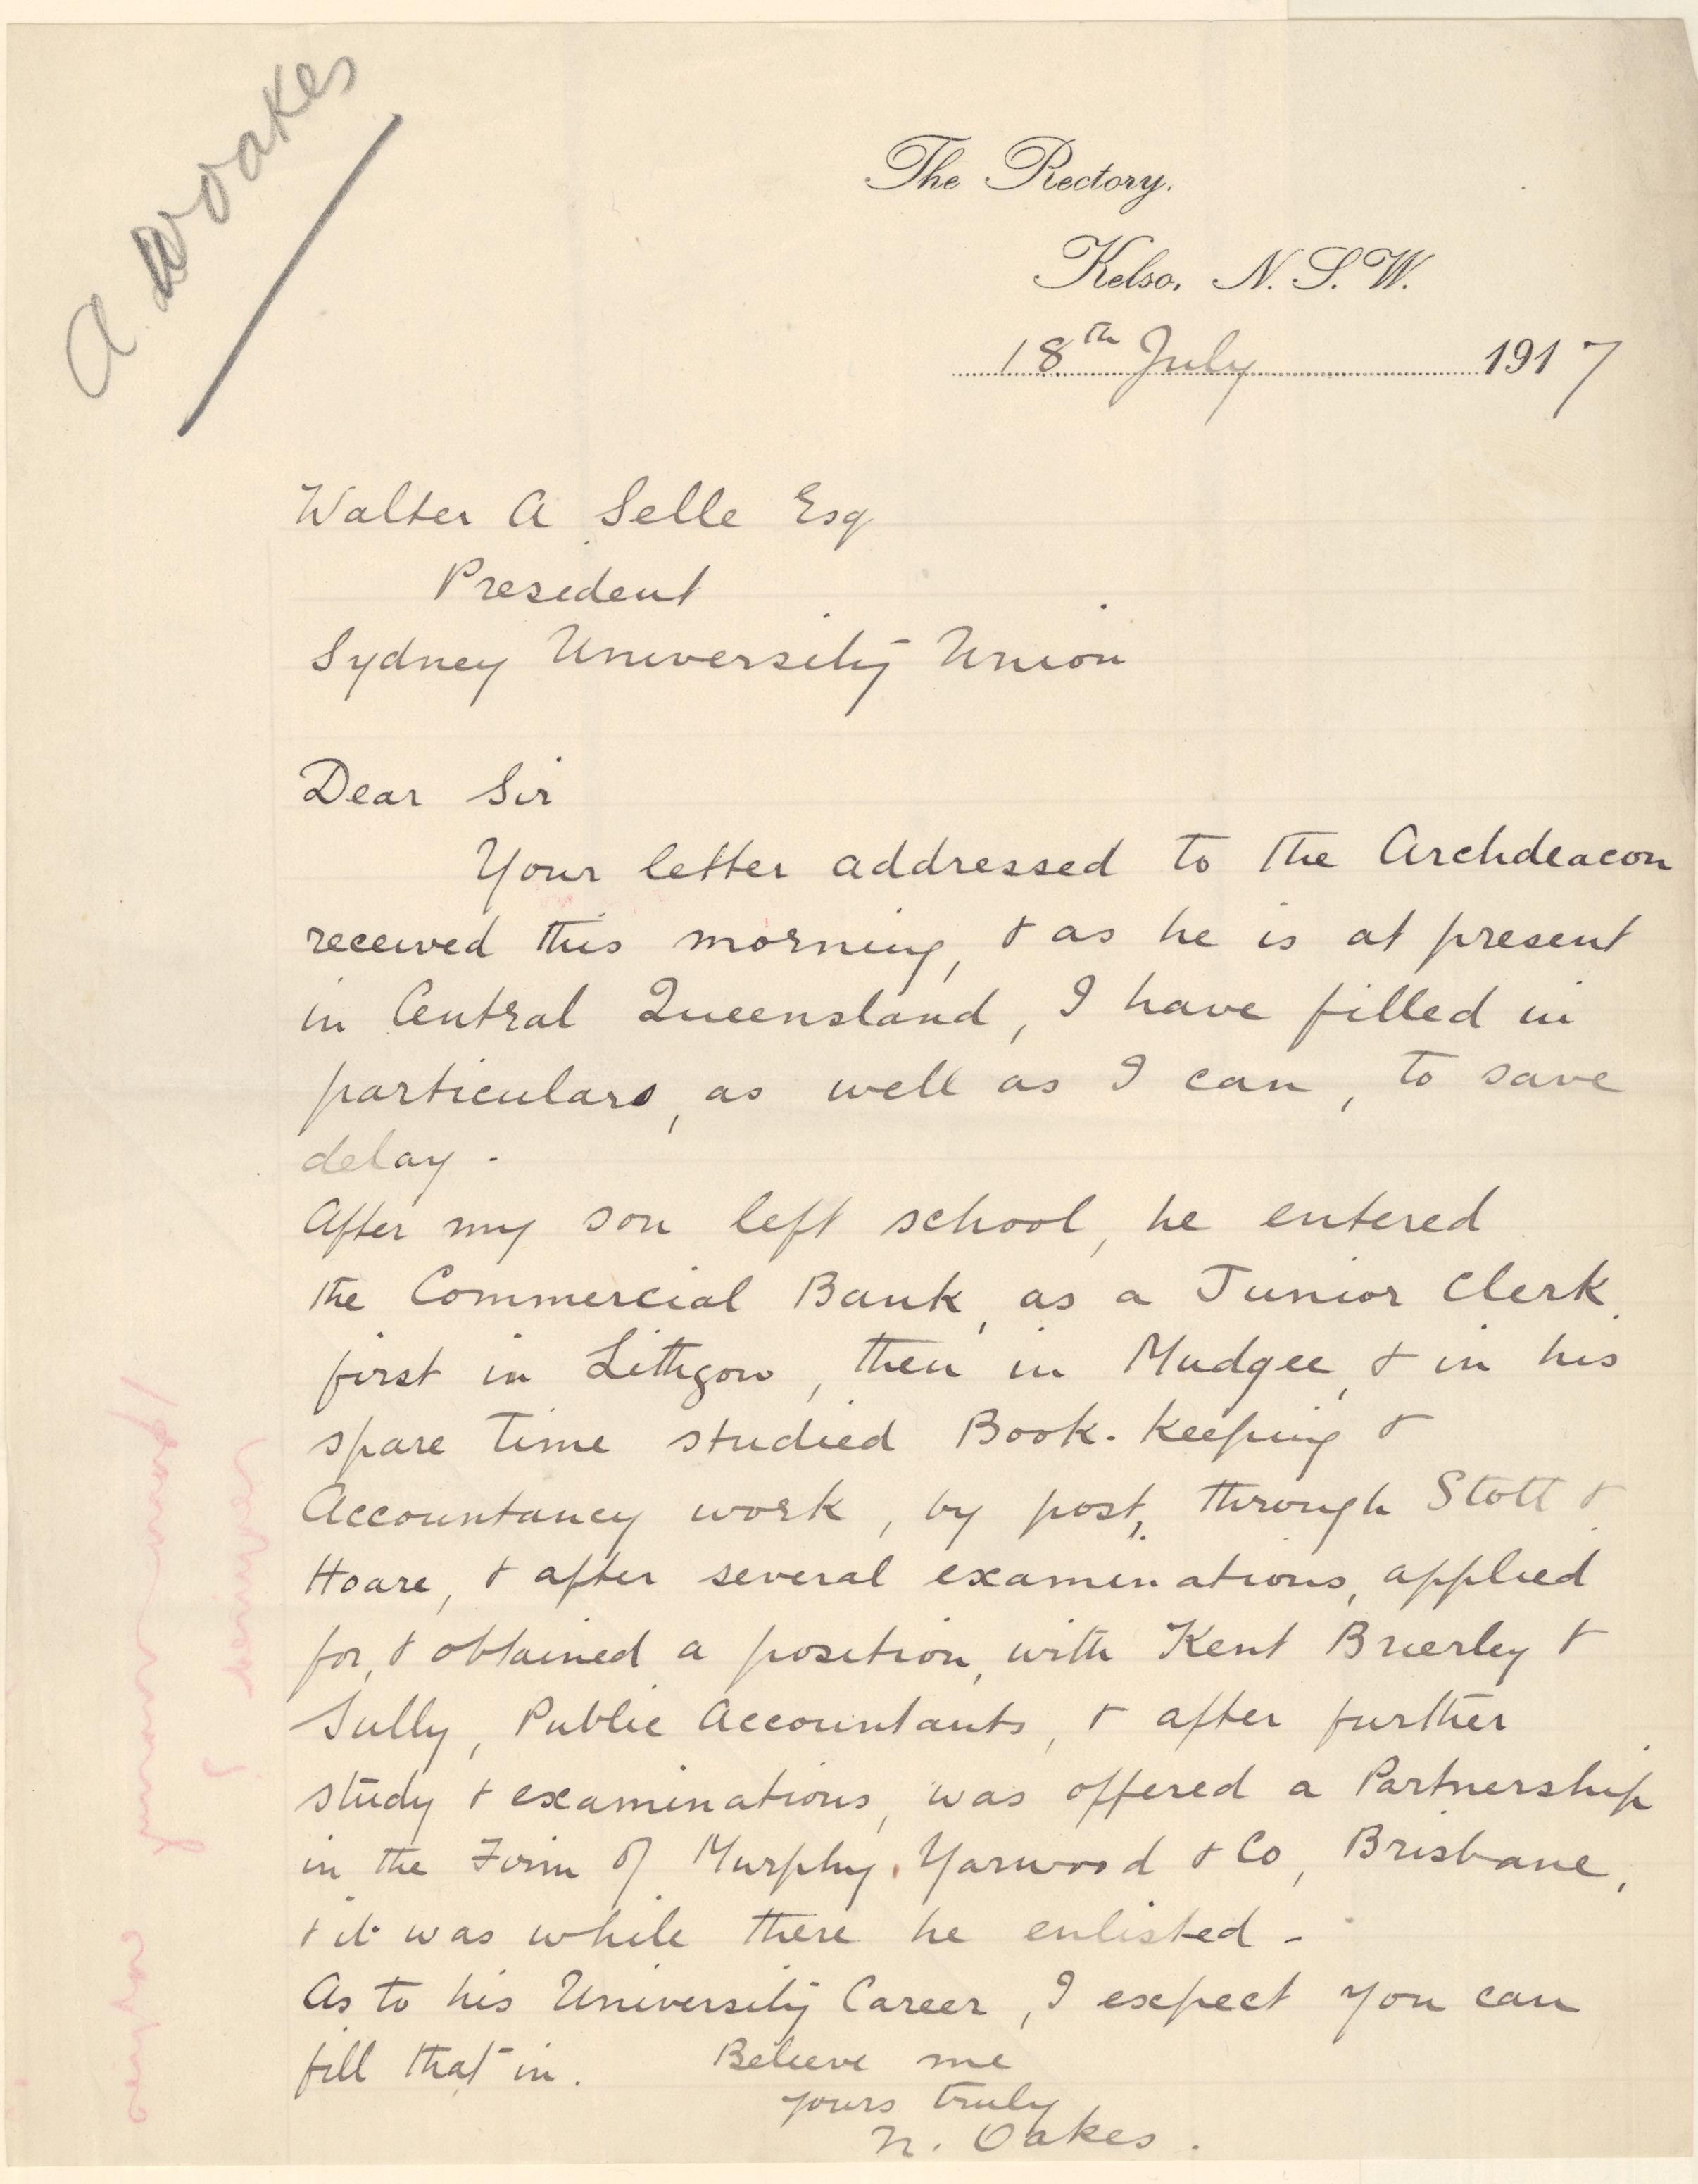 A W Oakes
The Rectory.
Kelso, N. S. W.
18th July 1917
Walter A Selle Esq
President
Sydney University Union
Dear Sir
Your letter addressed to the Archdeacon
received this morning, & as he is at present
in Central Queensland, I have filled in
particulars, as well as I can, to save
delay -
After my son left school, he entered
the Commercial Bank, as a Junior Clerk
first in Lithgow, then in Mudgee, & in his
spare time studied Book-keeping &
Accountancy work, by post, through Stott &
Hoare, & after several examinations, applied
for, & obtained a position, with Kent Brierley &
Sully, Public Accountants, & after further
study & examinations, was offered a Partnership
in the Firm of Murphy, Yarwood & Co, Brisbane,
& it was while there he enlisted -
As to his University Career, I expect you can
fill that in. Believe me
yours truly
N. Oakes.